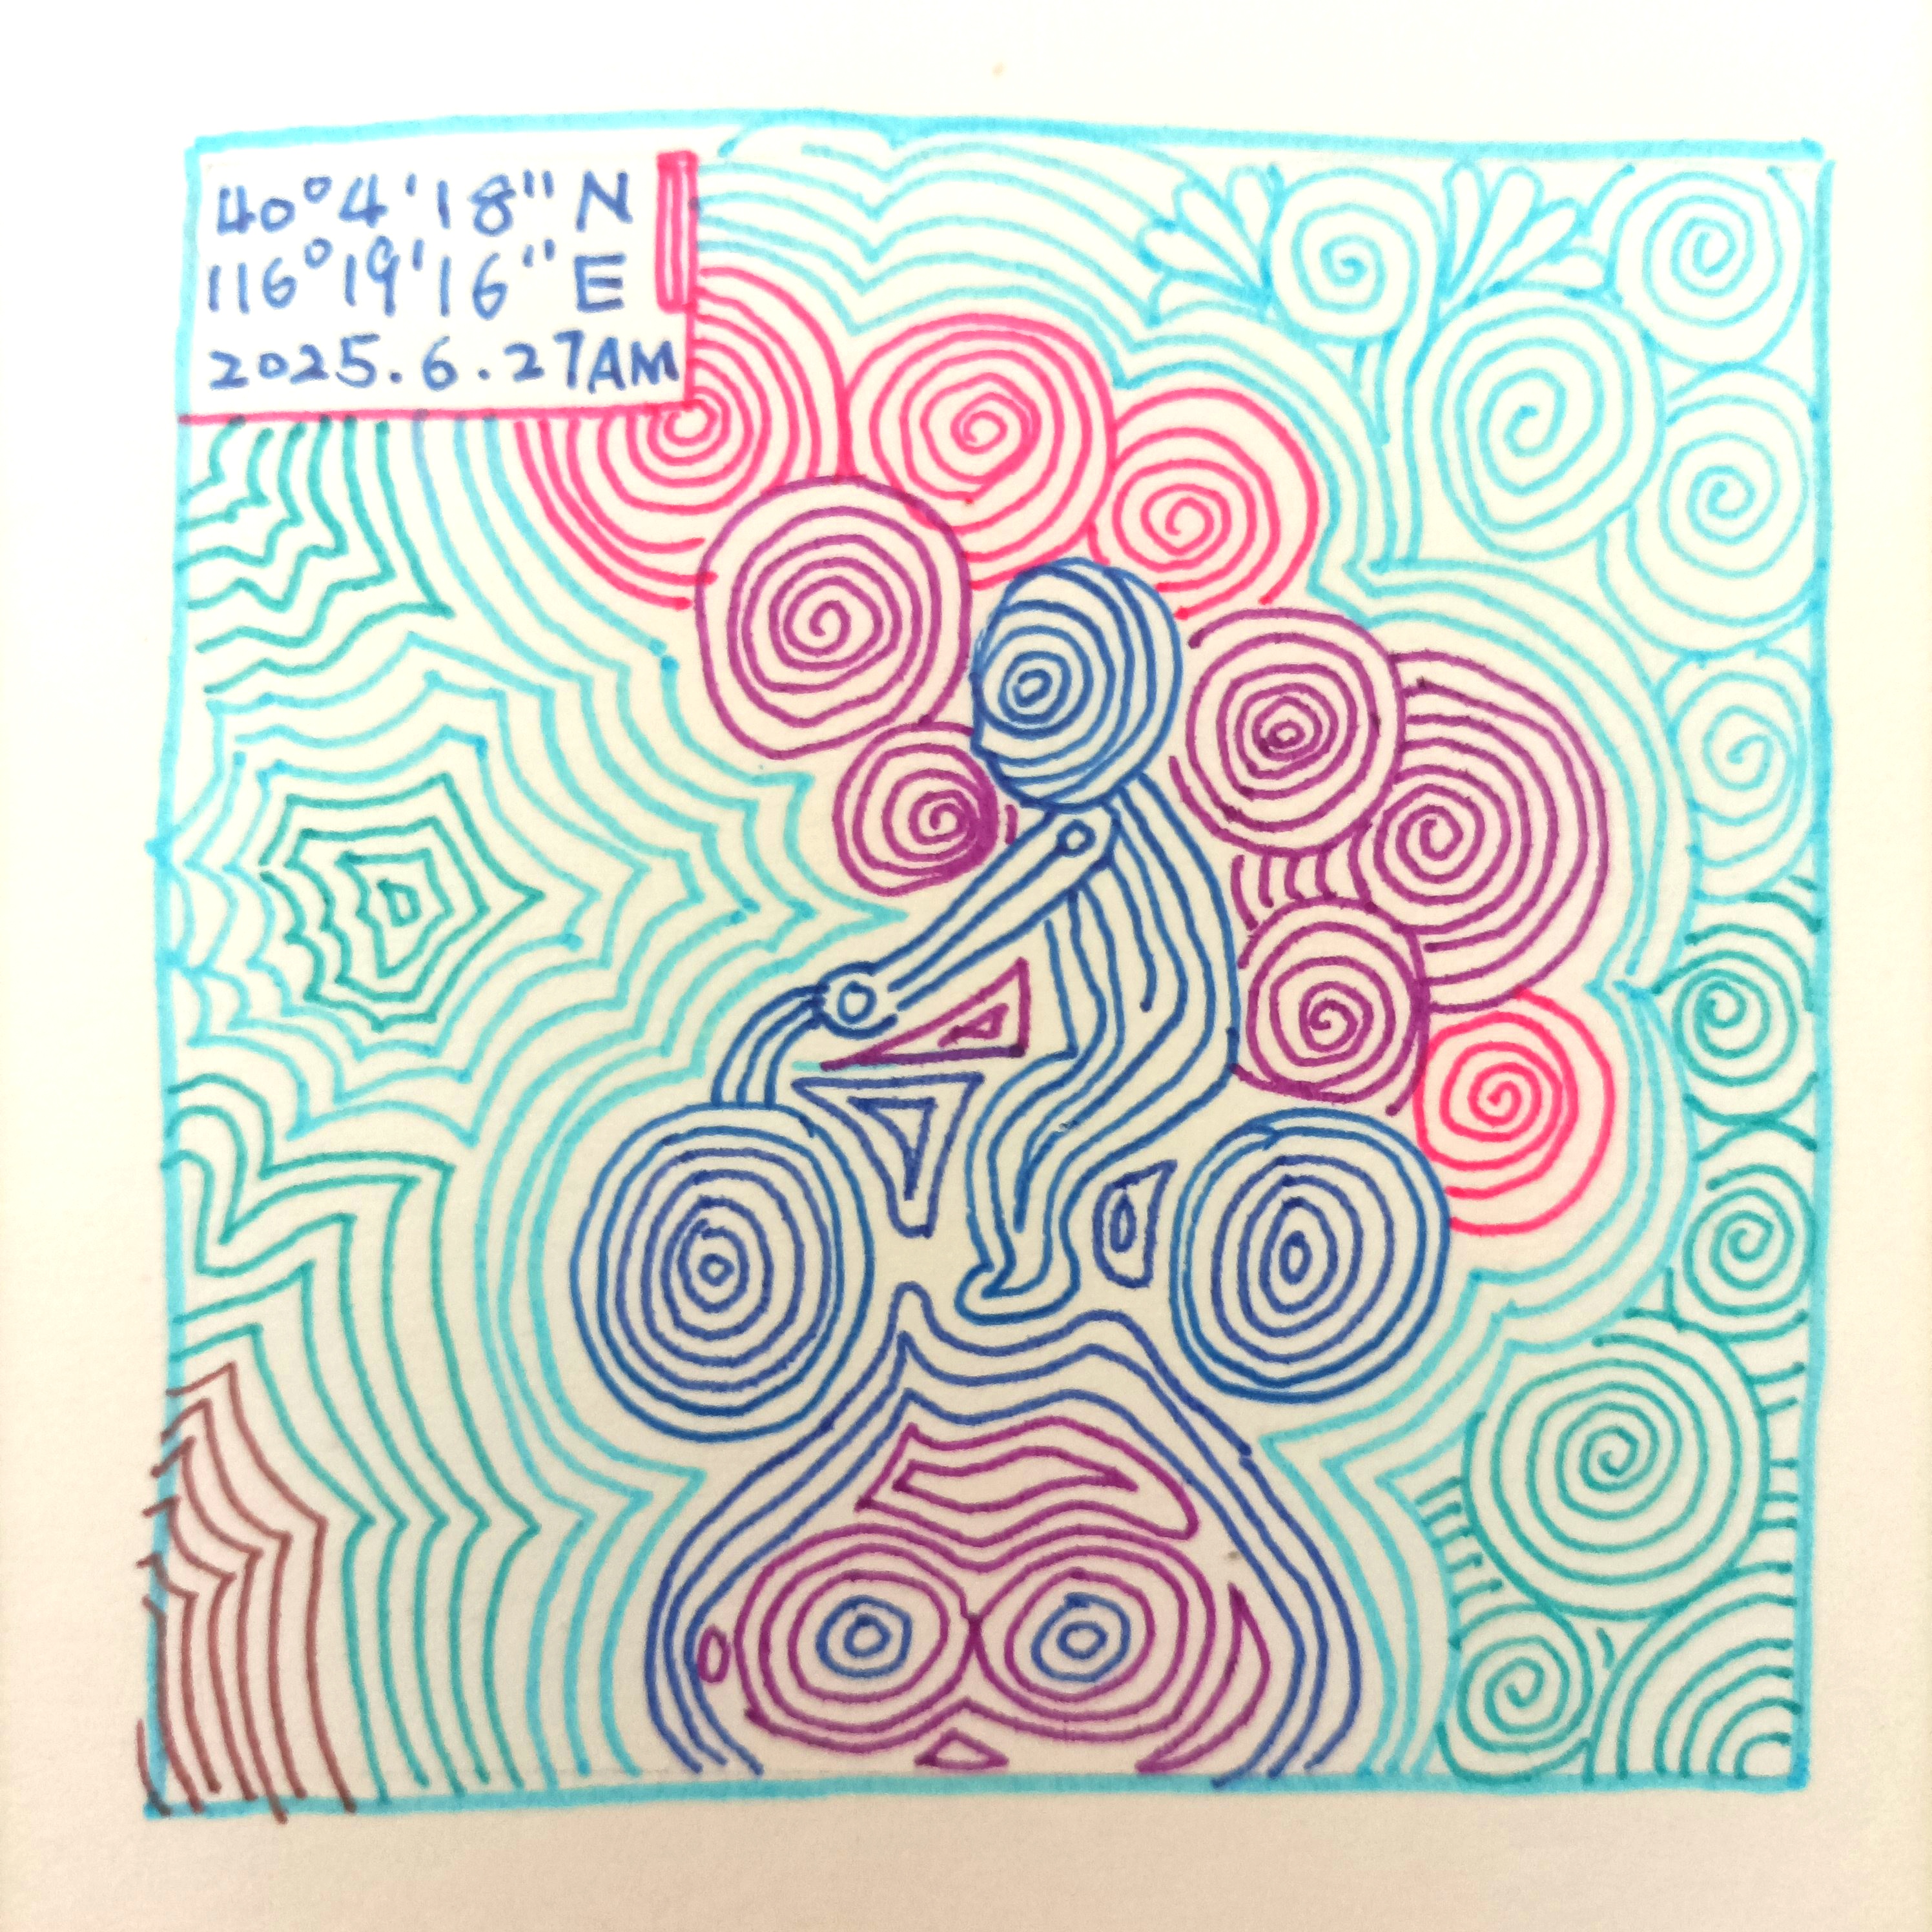 40°4'18"N
116°19'16"E
2025.6.27AM